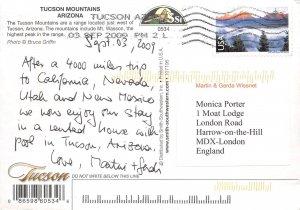 TUCSON MOUNTAINS
ARIZONA
The Tucson Mountains are a range located just west of
Tucson, Arizona. The mountains include Mt. Wasson, the
highest peak in the range.
Photo © Bruce Griffin
TUCSON AZ
03 SEP 2009 PM 2 L
0534
USA
Sept. 03, 2009
After a 4000 miles trip
to California, Nevada,
Utah and New Mexico
we now enjoy our stay
in a rented house with
pool in Tucson, Arizona.
Love, Martin + Gerda
Tucson
DO NOT WRITE BELOW THIS LINE
www.smith-southwestern.com
Martin & Gerda Wissnet
Monica Porter
1 Moat Lodge
London Road
Harrow-on-the-Hill
MDX-London
England